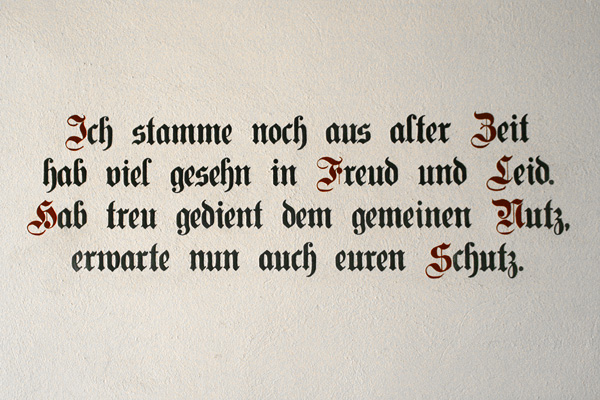 Ich stamme noch aus alter Zeit
hab viel gesehn in Freud und Leid.
Hab treu gedient dem gemeinen Nutz,
erwarte nun auch euren Schutz.